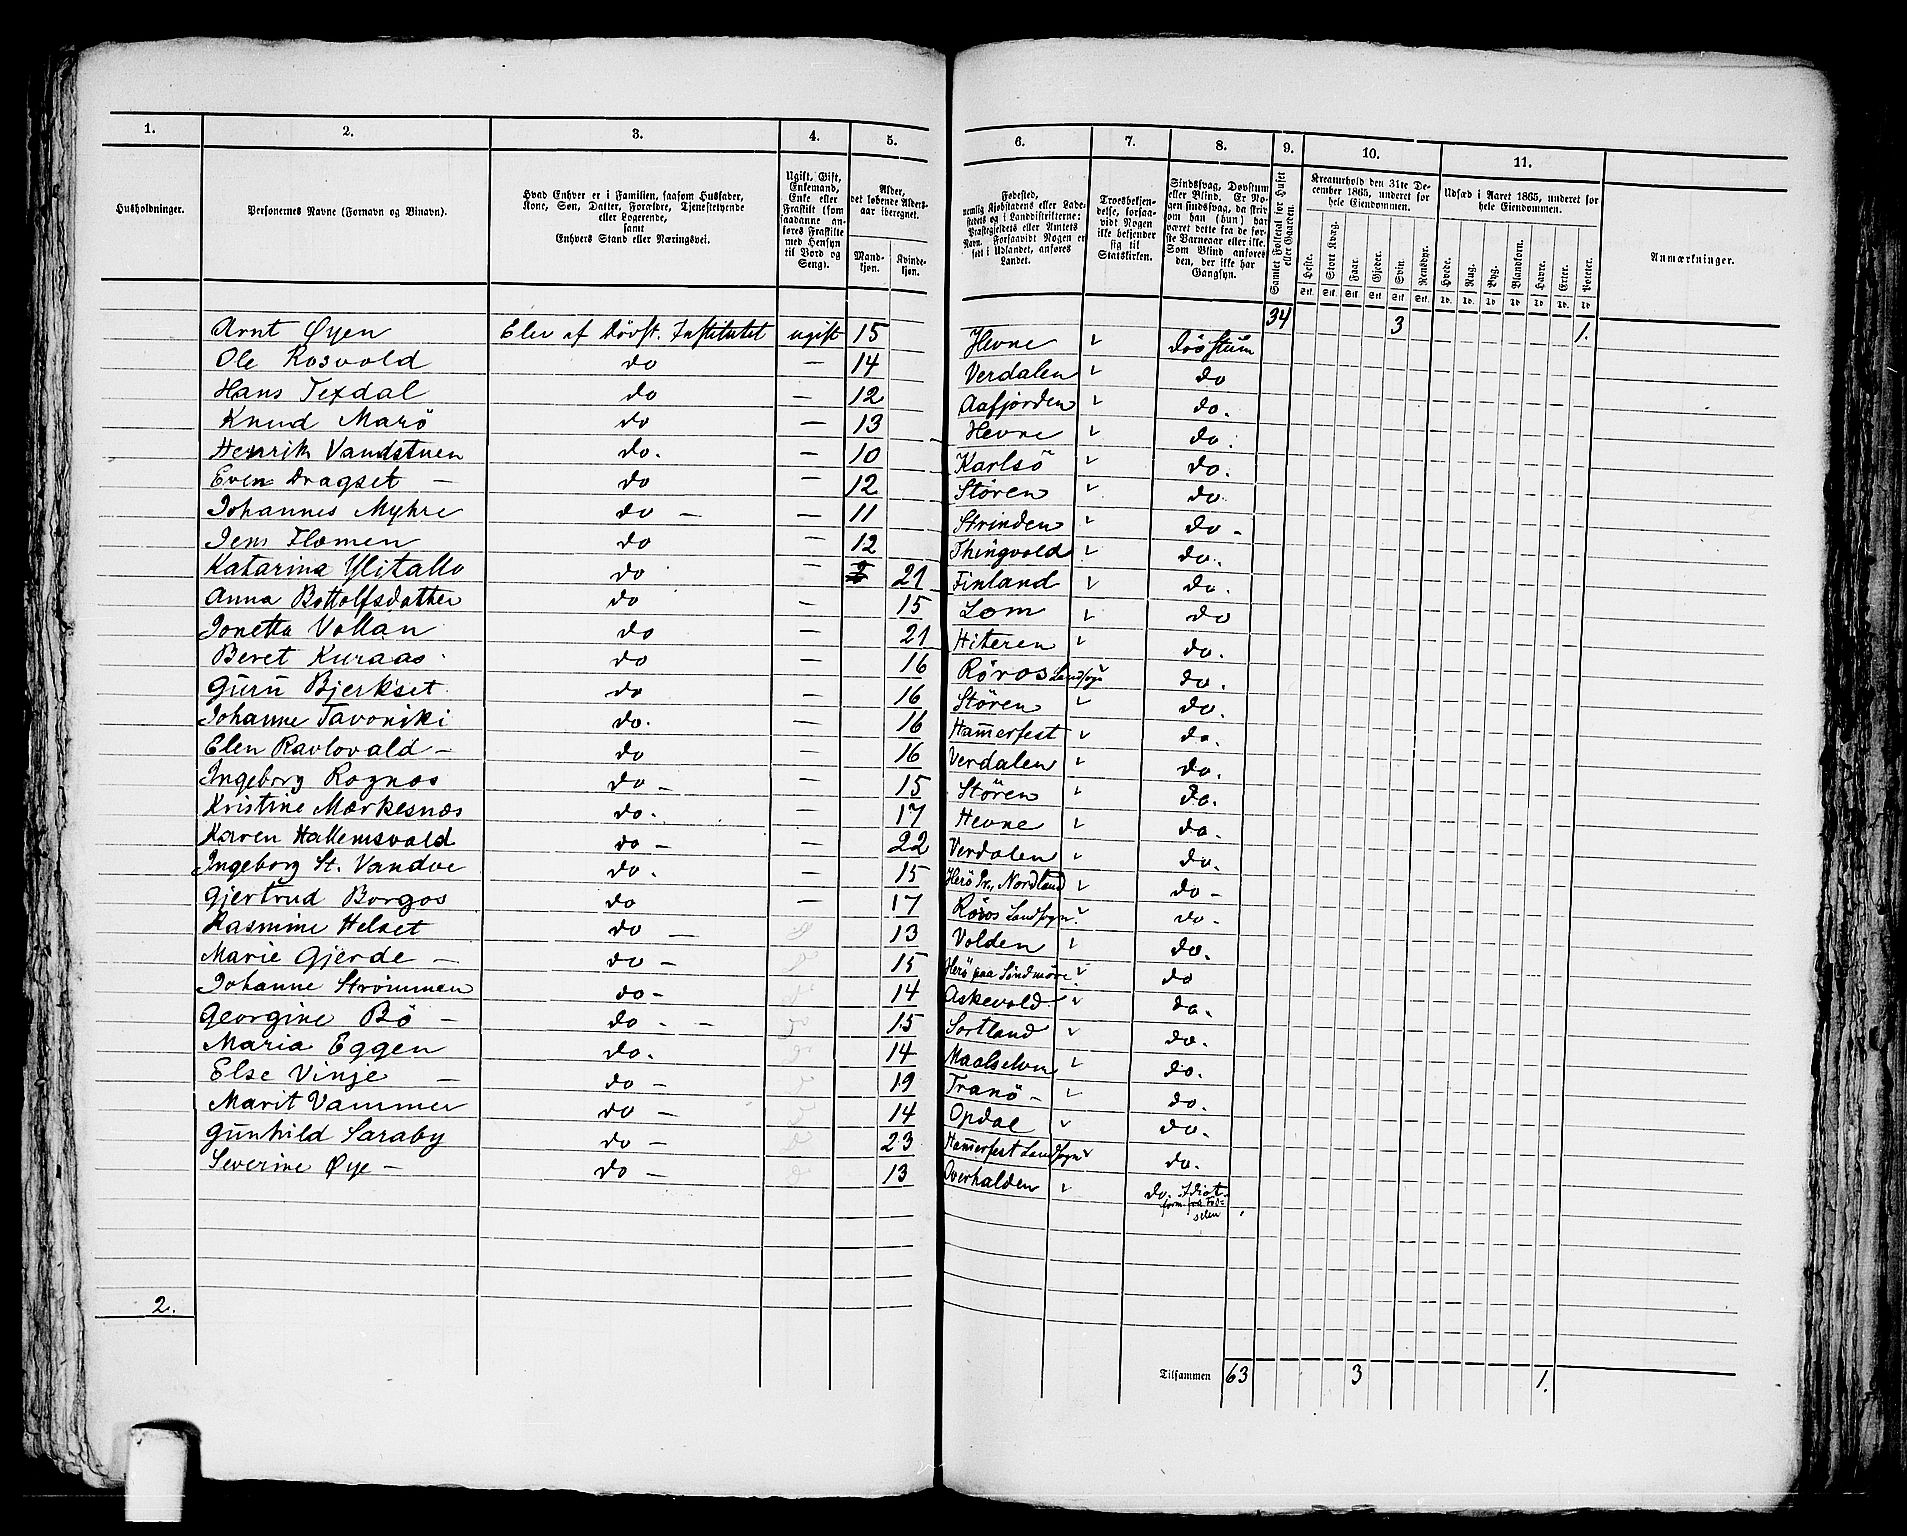 1. 2. 3. 4. 5. 6. 7. 8. 9. 10. 11.
Husholdninger.
Personernes Navne (Fornavn og Binavn).
Hvad Enhver er i Familien, saasom Husfader, Kone, Søn, Datter, Forældre, Tjenestetyende eller Logerende, samt Enhvers Stand eller Næringsvei.
Ugift, Gift, Enkemand, Enke eller Fraskilt (som saadanne anføres Fraskilte med Hensyn til Bord og Seng).
Alder, det løbende Aldersaar iberegnet.
Mandkjøn. Kvindekjøn.
Fødested, nemlig Kjøbstadens eller Ladestedets og i Landdistrikterne: Præstegjeldets eller Amtets Navn. Forsaavidt Nogen er født i Udlandet, anføres Landet.
Troesbekjendelse, forsaavidt Nogen ikke bekjender sig til Statskirken.
Sindssvag, Døvstum eller Blind. Er Nogen sindssvag, da skrives om han (hun) har været dette fra de første Barneaar eller ikke. Som Blind anføres den, der ikke har Gangsyn.
Samlet Folketal for Huset eller Gaarden.
Kreaturhold den 31te December 1865, underet for hele Eiendommen.
Heste. Stort Kvæg. Faar. Gjeder. Svin. Rensdyr.
Stk. Stk. Stk. Stk. Stk. Stk.
Udsæd i Aaret 1865, underet for hele Eiendommen.
Hvede. Rug. Byg. Blandkorn. Havre. Erter. Poteter.
Td. Td. Td. Td. Td. Td. Td.
Anmærkninger.
34 3 1.
Arnt Øyen Elev af Døvst. Institutet ugift 15 Hevne " Døvstum
Ole Rosvold do — 14 Verdalen " do
Hans Texdal do — 12 Aafjorden " do.
Knud Marö do — 13 Hevne " do.
Henrik Vandstuen do. — 10 Karlsö " do.
Even Dragset — do — 12 Stören " do
Johannes Myhre do — — 11 Strinden " do —
Jens Flamen do — 12 Thingvold " do.
Katarina Ylitallo do — 21 Finland " do.
Anna Bottolfsdatter do — 15 Lom " do
Jonetta Vollan do — 21 Hiteren " do.
Beret Kuraas do — 16 Røros Landsogn " do.
Guru Bjerkset do — 16 Stören " do.
Johanne Tavoniki do. — 16 Hamerfest " do.
Elen Ravlovald — do — 16 Verdalen " do.
Ingeborg Rognos do — — 15 Stören " do.
Kristine Mærkesnæs do. — 17 Hevne " do.
Karen Hallemsvald do — — 22 Verdalen " do.
Ingeborg St. Vandve do. — 15 Herö Pr., Nordland " do —
Gjertrud Borgos do — 17 Røros Landsogn " do.
Rasmine Helset do — 13 Volden " do.
Marie Gjerde — do — 15 Herö paa Söndmöre " do
Johanne Strømmen do — 14 Askevold " do.
Georgine Bö — do. — 15 Sortland " do.
Maria Eggen do. 14 Maalselven " do.
Else Vinje — do — 19 Tranö — " do.
Marit Vammer do — 14 Opdal " do.
Gunhild Saraby do — 23 Hamerfest Landsogn " do.
Severine Øye — do — 13 Overhalden " do. Idiot
form fra Fødselen
2.
Tilsammen 63 3 1.